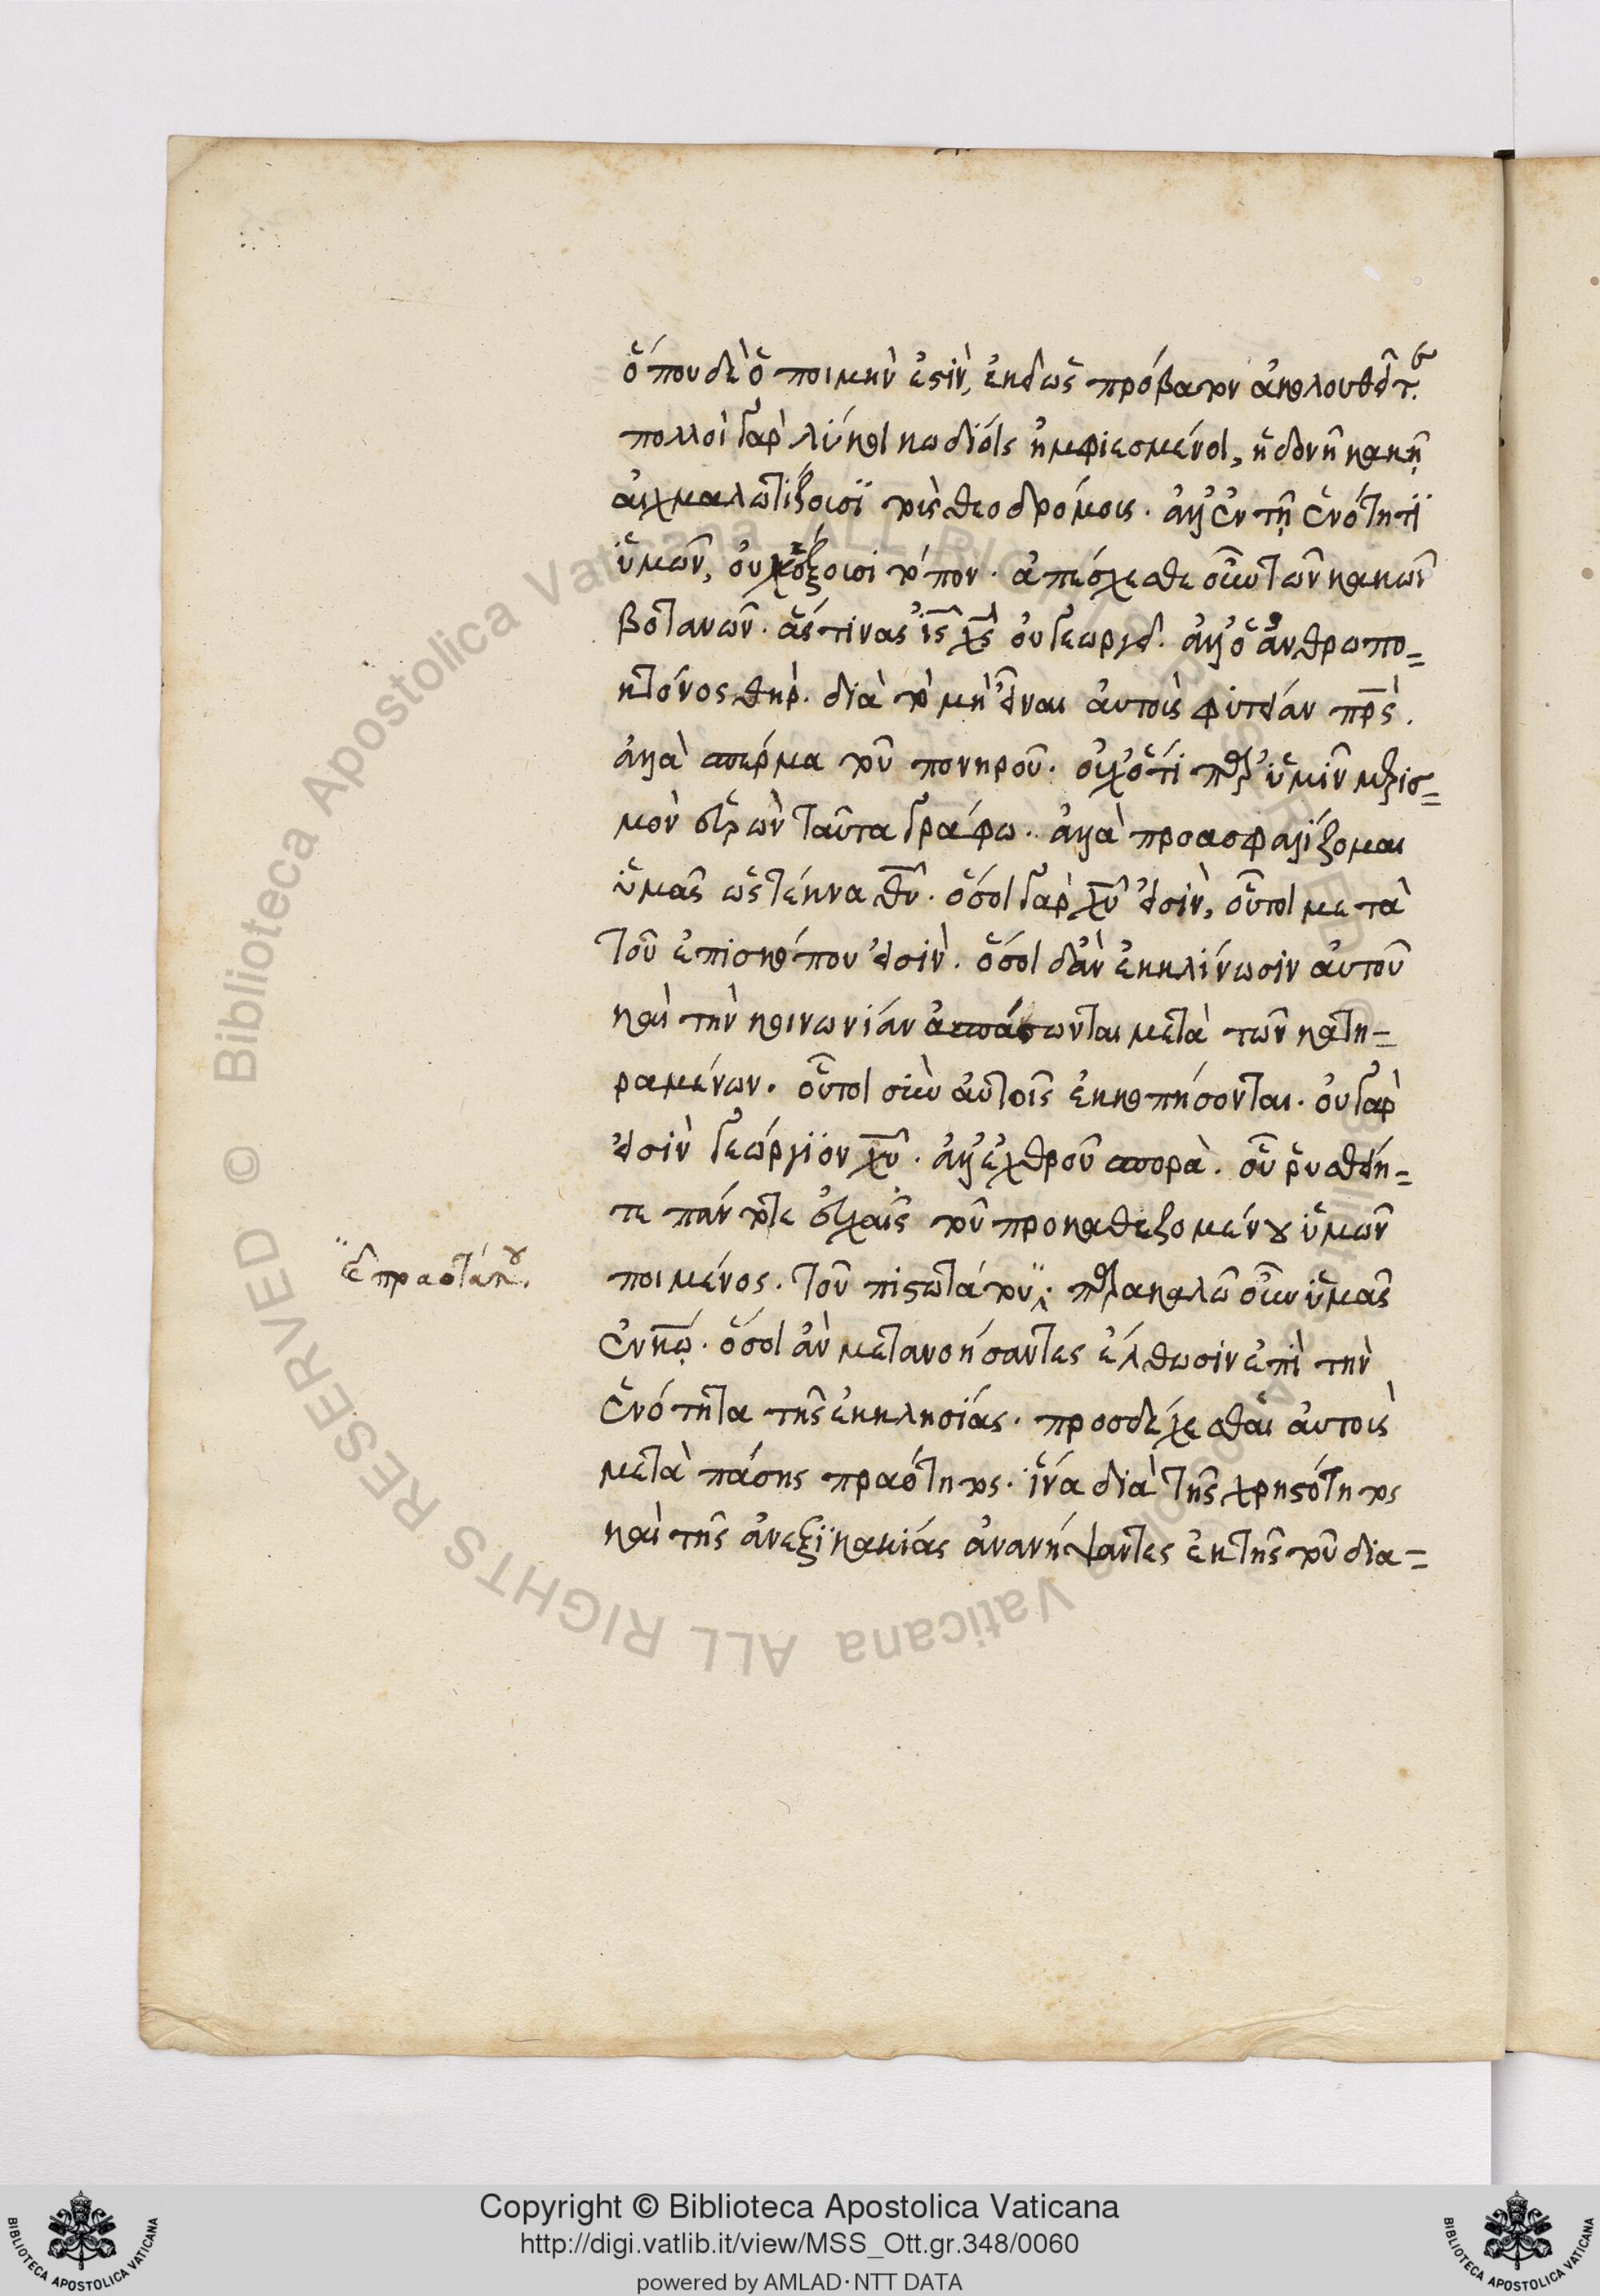 ὅπου δὲ ὁ ποιμὴν ἐστὶν, ἐκεῖ ὡς πρόβατον ἀκολουθεῖτε.
πολλοὶ γὰρ λύκοι κωδίοις ἠμφιεσμένοι, ἡδονῇ κακῇ
αἰχμαλωτίζουσϊ τοὺς θεοδρόμους. ἀλλ' ἐν τῇ ἑνότητϊ
ὑμῶν, οὐχ ἕξουσι τόπον. ἀπέσχεσθε οὖν τῶν κακῶν
βοτανῶν. ἅς τινας ἰς χς οὐ γεωργεῖ. ἀλλ' ὁ ἀνθρωπο=
κτόνος θὴρ. διὰ τὸ μὴ εἶναι αὐτοὺς φυτείαν πρς.
ἀλλὰ σπέρμα τοῦ πονηροῦ. οὐχ ὅτι παρ' ὑμῖν μερισ=
μὸν εὑρὼν ταῦτα γράφω. ἀλλὰ προασφαλίζομαι
ὑμᾶς ὡς τέκνα θυ. ὅσοι γὰρ χυ εἰσὶν, οὗτοι μετὰ
τοῦ ἐπισκόπου εἰσὶν. ὅσοι δ' ἂν ἐκκλίνωσιν αὐτοῦ
καὶ τὴν κοινωνίαν ἀσπάσωνται μετὰ τῶν κατη=
ραμένων. οὗτοι σὺν αὐτοῖς ἐκκοπήσονται. οὐ γὰρ
εἰσὶν γεώργιον χυ. ἀλλ' ἐχθροῦ σπορὰ. οὗ ῥυσθείη=
τε πάντοτε εὐχαῖς τοῦ προκαθεζομένου ὑμῶν
ποιμένος. τοῦ πιστωτάτου. παρακαλῶ οὖν ὑμᾶς
καὶ πραοτάτου.
ἐν κω. ὅσοι ἂν μετανοήσαντες ἔλθωσιν ἐπὶ τὴν
ἑνότητα τῆς ἐκκλησίας. προσδέχεσθαι αὐτοὺς
μετὰ πάσης πραότητος. ἵνα διὰ τῆς χρηστότητος
καὶ τῆς ἀνεξϊκακίας ἀνανήψαντες ἐκ τῆς τοῦ δια=
Copyright © Biblioteca Apostolica Vaticana
http://digi.vatlib.it/view/MSS_Ott.gr.348/0060
powered by AMLAD·NTT DATA
BIBLIOTECA APOSTOLICA VATICANA
BIBLIOTECA APOSTOLICA VATICANA
© Biblioteca Apostolica Vaticana ALL RIGHTS RESERVED
© Biblioteca Apostolica Vaticana ALL RIGHTS RESERVED